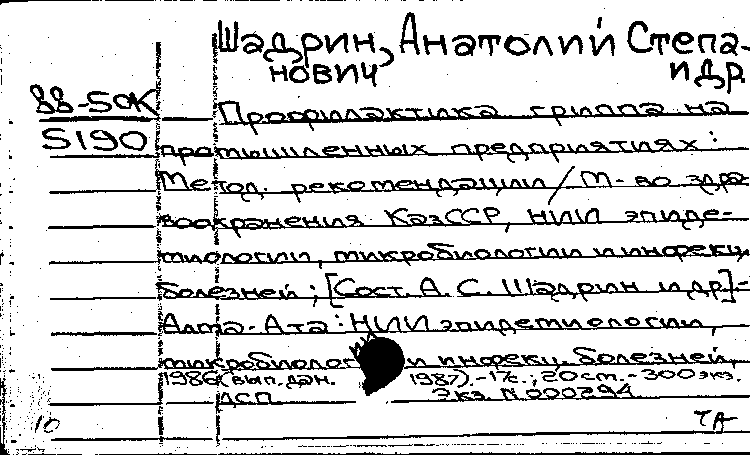 Шадрин, Анатолий Степа-
нович и др
88-5ОК
5190
Профилактика гриппа на
промышленных предприятиях:
Метод. рекомендации / М-во здра-
воохранения КазССР, НИИ эпиде-
миологии, микробиологии и инфекц.
болезней; [Сост. А. С. Шадрин и др]=
Алма-Ата: НИИ эпидемиологии,
микробиологии и инфекц. болезней,
1986 (вып. дан. 1987).-17с.; 20 см.-300 экз.
ДСП. Экз. N 000294
10
ТА